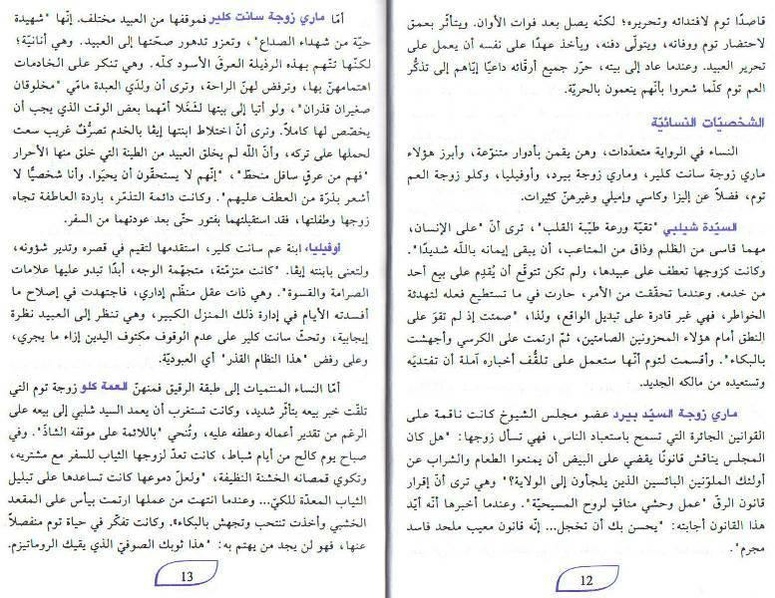 قاصدًا توم لافتدائه وتحريره؛ لكنّه يصل بعد فوات الأوان. ويتأثّر بعمق
لاحتضار توم ووفاته، ويتولّى دفنه، ويأخذ عهدًا على نفسه أن يعمل على
تحرير العبيد. وعندما عاد إلى بيته، حرّر جميع أرقّائه داعيًا إيّاهم إلى تذكُّر
العم توم كلّما شعروا بأنّهم ينعمون بالحريّة.
الشخصيّات النسائيّة
النساء في الرواية متعدّدات، وهن يقمن بأدوار متنوّعة، وأبرز هؤلاء
ماري زوجة سانت كلير، وماري زوجة بيرد، وأوفيليا، وكلو زوجة العم
توم، فضلاً عن إليزا وكاسي وإميلي وغيرهنّ كثيرات.
السيّدة شيلبي "تقيّة ورعة طيّبة القلب"، ترى أنّ "على الإنسان،
مهما قاسى من الظلم وذاق من المتاعب، أن يبقى إيمانه باللّه شديدًا".
وكانت كزوجها تعطف على عبيدها، ولم تكن تتوقّع أن يُقدِم على بيع أحد
من خدمه. وعندما تحقّقت من الأمر، حارت في ما تستطيع فعله لتهدئة
الخواطر، فهي غير قادرة على تبديل الواقع، ولذا، "صمتت إذ لم تقوَ على
النطق أمام هؤلاء المحزونين الصامتين، ثمّ ارتمت على الكرسي وأجهشت
بالبكاء". وأقسمت لتوم أنّها ستعمل على تلقُّف أخباره آملة أن تفتديَه
وتستعيده من مالكه الجديد.
ماري زوجة السيّد بيرد عضو مجلس الشيوخ كانت ناقمة على
القوانين الجائرة التي تسمح باستعباد الناس، فهي تسأل زوجها: "هل كان
المجلس يناقش قانونًا يقضي على البيض أن يمنعوا الطعام والشراب عن
أولئك الملوّنين البائسين الذين يلجأون إلى الولاية؟" وهي ترى أنّ إقرار
قانون الرقّ "عمل وحشي منافٍ لروح المسيحيّة". وعندما أخبرها أنّه أيّد
هذا القانون أجابته: "يحسن بك أن تخجل... إنّه قانون معيب ملحد فاسد
مجرم".
12
أمّا ماري زوجة سانت كلير فموقفها من العبيد مختلف. إنّها "شهيدة
حيّة من شهداء الصداع"، وتعزو تدهور صحّتها إلى العبيد. وهي أنانيّة؛
لكنّها تتّهم بهذه الرذيلة العرقَ الأسود كلّه. وهي تنكر على الخادمات
اهتمامهنّ بها، وترفض لهنّ الراحة، وترى أن ولدَي العبدة مامّي "مخلوقان
صغيران قذران"، ولو أتيا إلى بيتها لشَغَلا أمّهما بعض الوقت الذي يجب أن
يخصّص لها كاملاً. وترى أنّ اختلاط ابنتها إيڤا بالخدم تصرُّفٌ غريب سعت
لحملها على تركه، وأنّ اللّه لم يخلق العبيد من الطينة التي خلق منها الأحرار
"فهم من عرقٍ سافل منحطّ"، "إنّهم لا يستحقّون أن يحيَوا. وأنا شخصيًّا لا
أشعر بذرّة من العطف عليهم". وكانت دائمة التذمّر، باردة العاطفة تجاه
زوجها وطفلتها، فقد استقبلتهما بفتور حتّى بعد عودتهما من السفر.
أوفيليا، ابنة عم سانت كلير، استقدمها لتقيم في قصره وتدير شؤونه،
ولتعنى بابنته إيڤا. "كانت متزمّتة، متجهّمة الوجه، أبدًا تبدو عليها علامات
الصرامة والقسوة". وهي ذات عقل منظّم إداري، فاجتهدت في إصلاح ما
أفسدته الأيام في إدارة ذلك المنزل الكبير، وهي تنظر إلى العبيد نظرة
إيجابية، وتحثّ سانت كلير على عدم الوقوف مكتوف اليدين إزاء ما يجري،
وعلى رفض "هذا النظام القذر" أي العبوديّة.
أمّا النساء المنتميات إلى طبقة الرقيق فمنهنّ العمة كلو زوجة توم التي
تلقّت خبر بيعه بتأثّر شديد، وكانت تستغرب أن يعمد السيد شلبي إلى بيعه على
الرغم من تقدير أعماله وعطفه عليه، وتُنحي "باللائمة على موقفه الشاذّ". وفي
صباح يوم كالح من أيام شباط، كانت تعدّ لزوجها الثياب للسفر مع مشتريه،
وتكوي قمصانه الخشنة النظيفة، "ولعلّ دموعها كانت تساعدها على تبليل
الثياب المعدّة للكيّ... وعندما انتهت من عملها ارتمت بيأس على المقعد
الخشبي وأخذت تنتحب وتجهش بالبكاء". وكانت تفكّر في حياة توم منفصلاً
عنها، فهو لن يجد من يهتم به: "هذا ثوبك الصوفيّ الذي يقيك الروماتيزم.
13